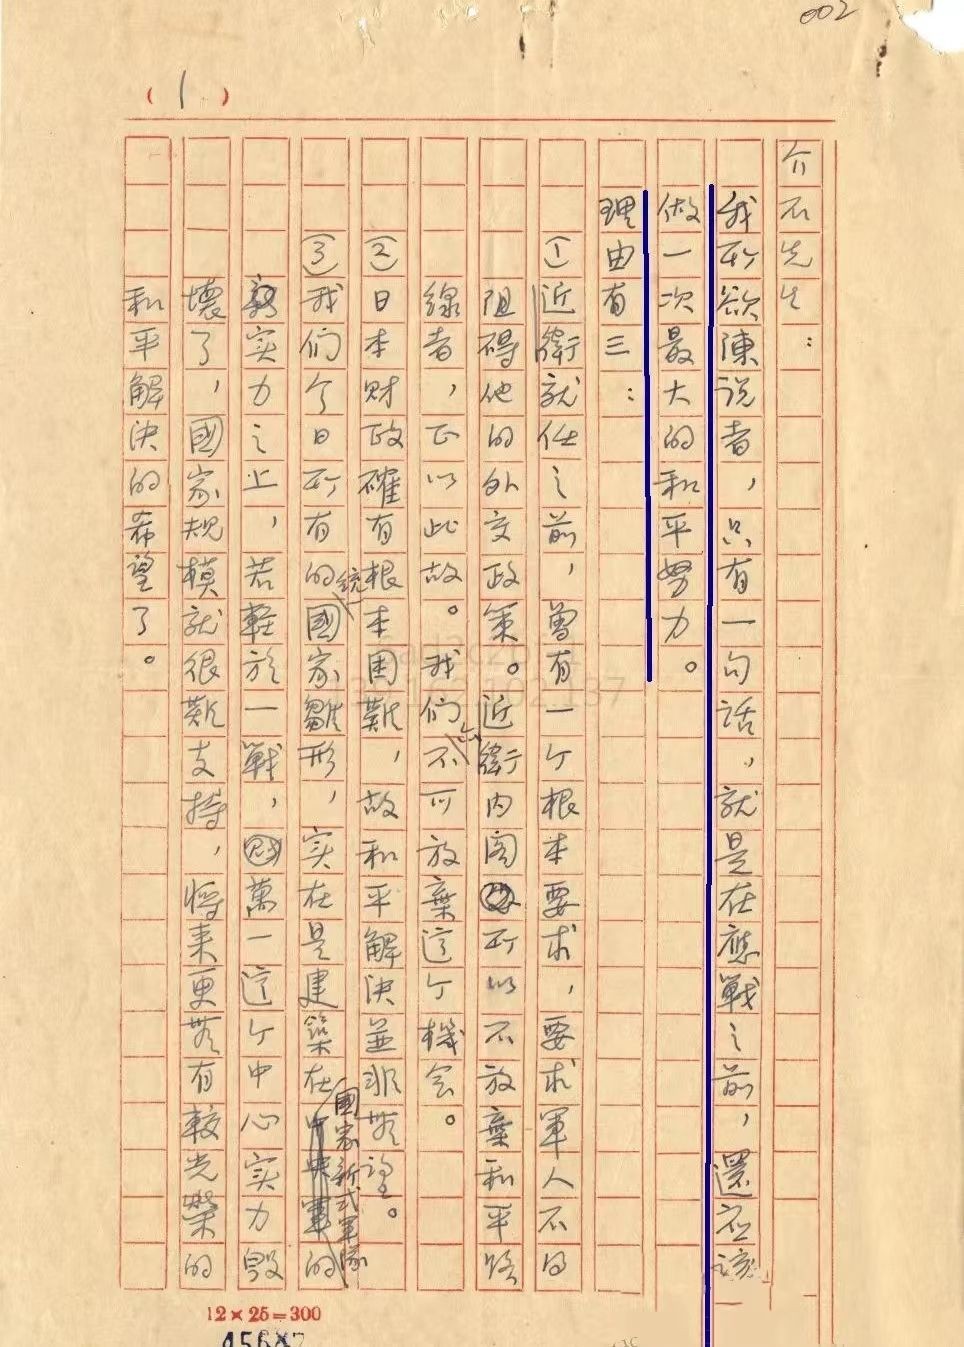 002
( 1 )
介石先生：
我所欲陳说者，只有一句话，就是在應戰之前，還应该
做一次最大的和平努力。
理由有三：
(1)近衛就任之前，曾有一个根本要求，要求軍人不得
阻碍他的外交政策。近衛内阁所以不放棄和平路
線者，正以此故。我们不可放棄这个機会。
(2)日本财政確有根本困難，故和平解决並非無望。
(3)我们今日所有的统一國家雛形，实在是建築在國家新式軍隊的
实力之上，若輕於一戰，萬一这个中心实力毁
壞了，國家規模就很難支持，將来更無有較光榮的
和平解决的希望了。
12×25=300